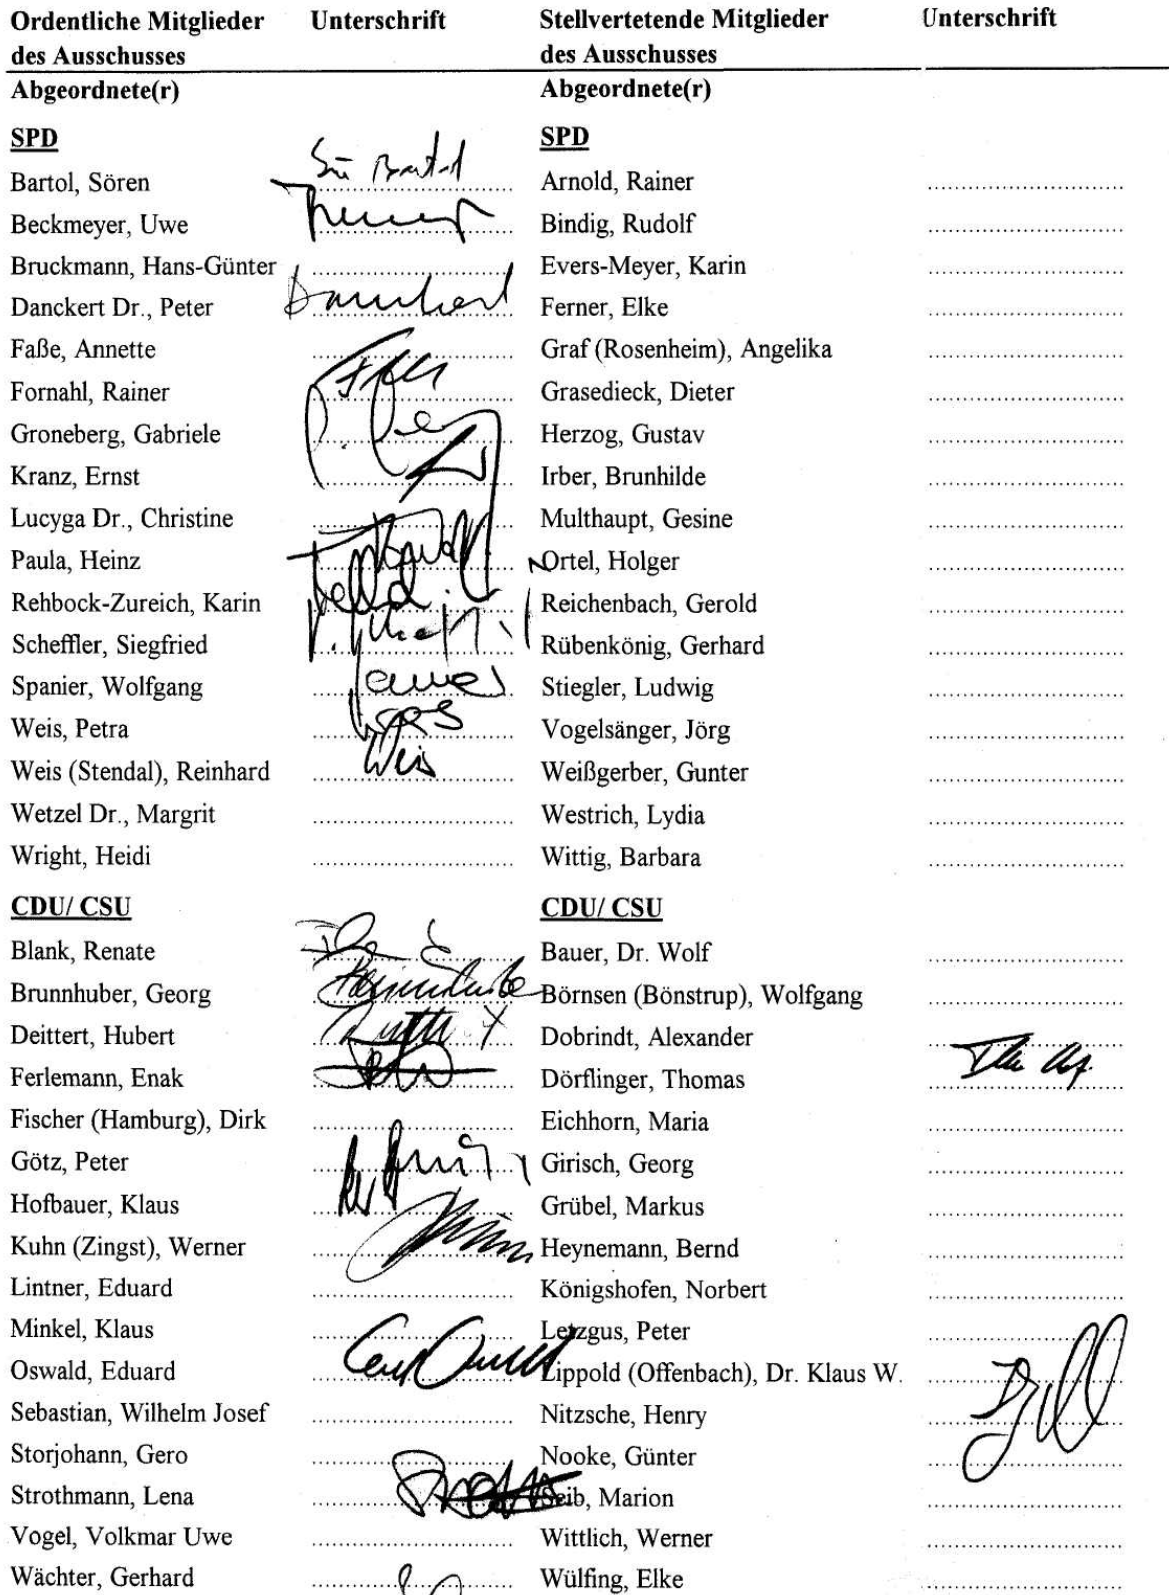 Ordentliche Mitglieder Unterschrift Stellvertetende Mitglieder Unterschrift
des Ausschusses des Ausschusses
Abgeordnete(r) Abgeordnete(r)
SPD SPD
Bartol, Sören Arnold, Rainer
Beckmeyer, Uwe Bindig, Rudolf
Bruckmann, Hans-Günter Evers-Meyer, Karin
Danckert Dr., Peter Danckert Ferner, Elke
Faße, Annette Graf (Rosenheim), Angelika
Fornahl, Rainer Grasedieck, Dieter
Groneberg, Gabriele Herzog, Gustav
Kranz, Ernst Irber, Brunhilde
Lucyga Dr., Christine Multhaupt, Gesine
Paula, Heinz Ortel, Holger
Rehbock-Zureich, Karin Reichenbach, Gerold
Scheffler, Siegfried Rübenkönig, Gerhard
Spanier, Wolfgang Stiegler, Ludwig
Weis, Petra Vogelsänger, Jörg
Weis (Stendal), Reinhard Weis Weißgerber, Gunter
Wetzel Dr., Margrit Westrich, Lydia
Wright, Heidi Wittig, Barbara
CDU/ CSU CDU/ CSU
Blank, Renate Bauer, Dr. Wolf
Brunnhuber, Georg Börnsen (Bönstrup), Wolfgang
Deittert, Hubert Dobrindt, Alexander
Ferlemann, Enak Dörflinger, Thomas
Fischer (Hamburg), Dirk Eichhorn, Maria
Götz, Peter Girisch, Georg
Hofbauer, Klaus Grübel, Markus
Kuhn (Zingst), Werner Heynemann, Bernd
Lintner, Eduard Königshofen, Norbert
Minkel, Klaus Letzgus, Peter
Oswald, Eduard Lippold (Offenbach), Dr. Klaus W.
Sebastian, Wilhelm Josef Nitzsche, Henry
Storjohann, Gero Nooke, Günter
Strothmann, Lena Seib, Marion
Vogel, Volkmar Uwe Wittlich, Werner
Wächter, Gerhard Wülfing, Elke